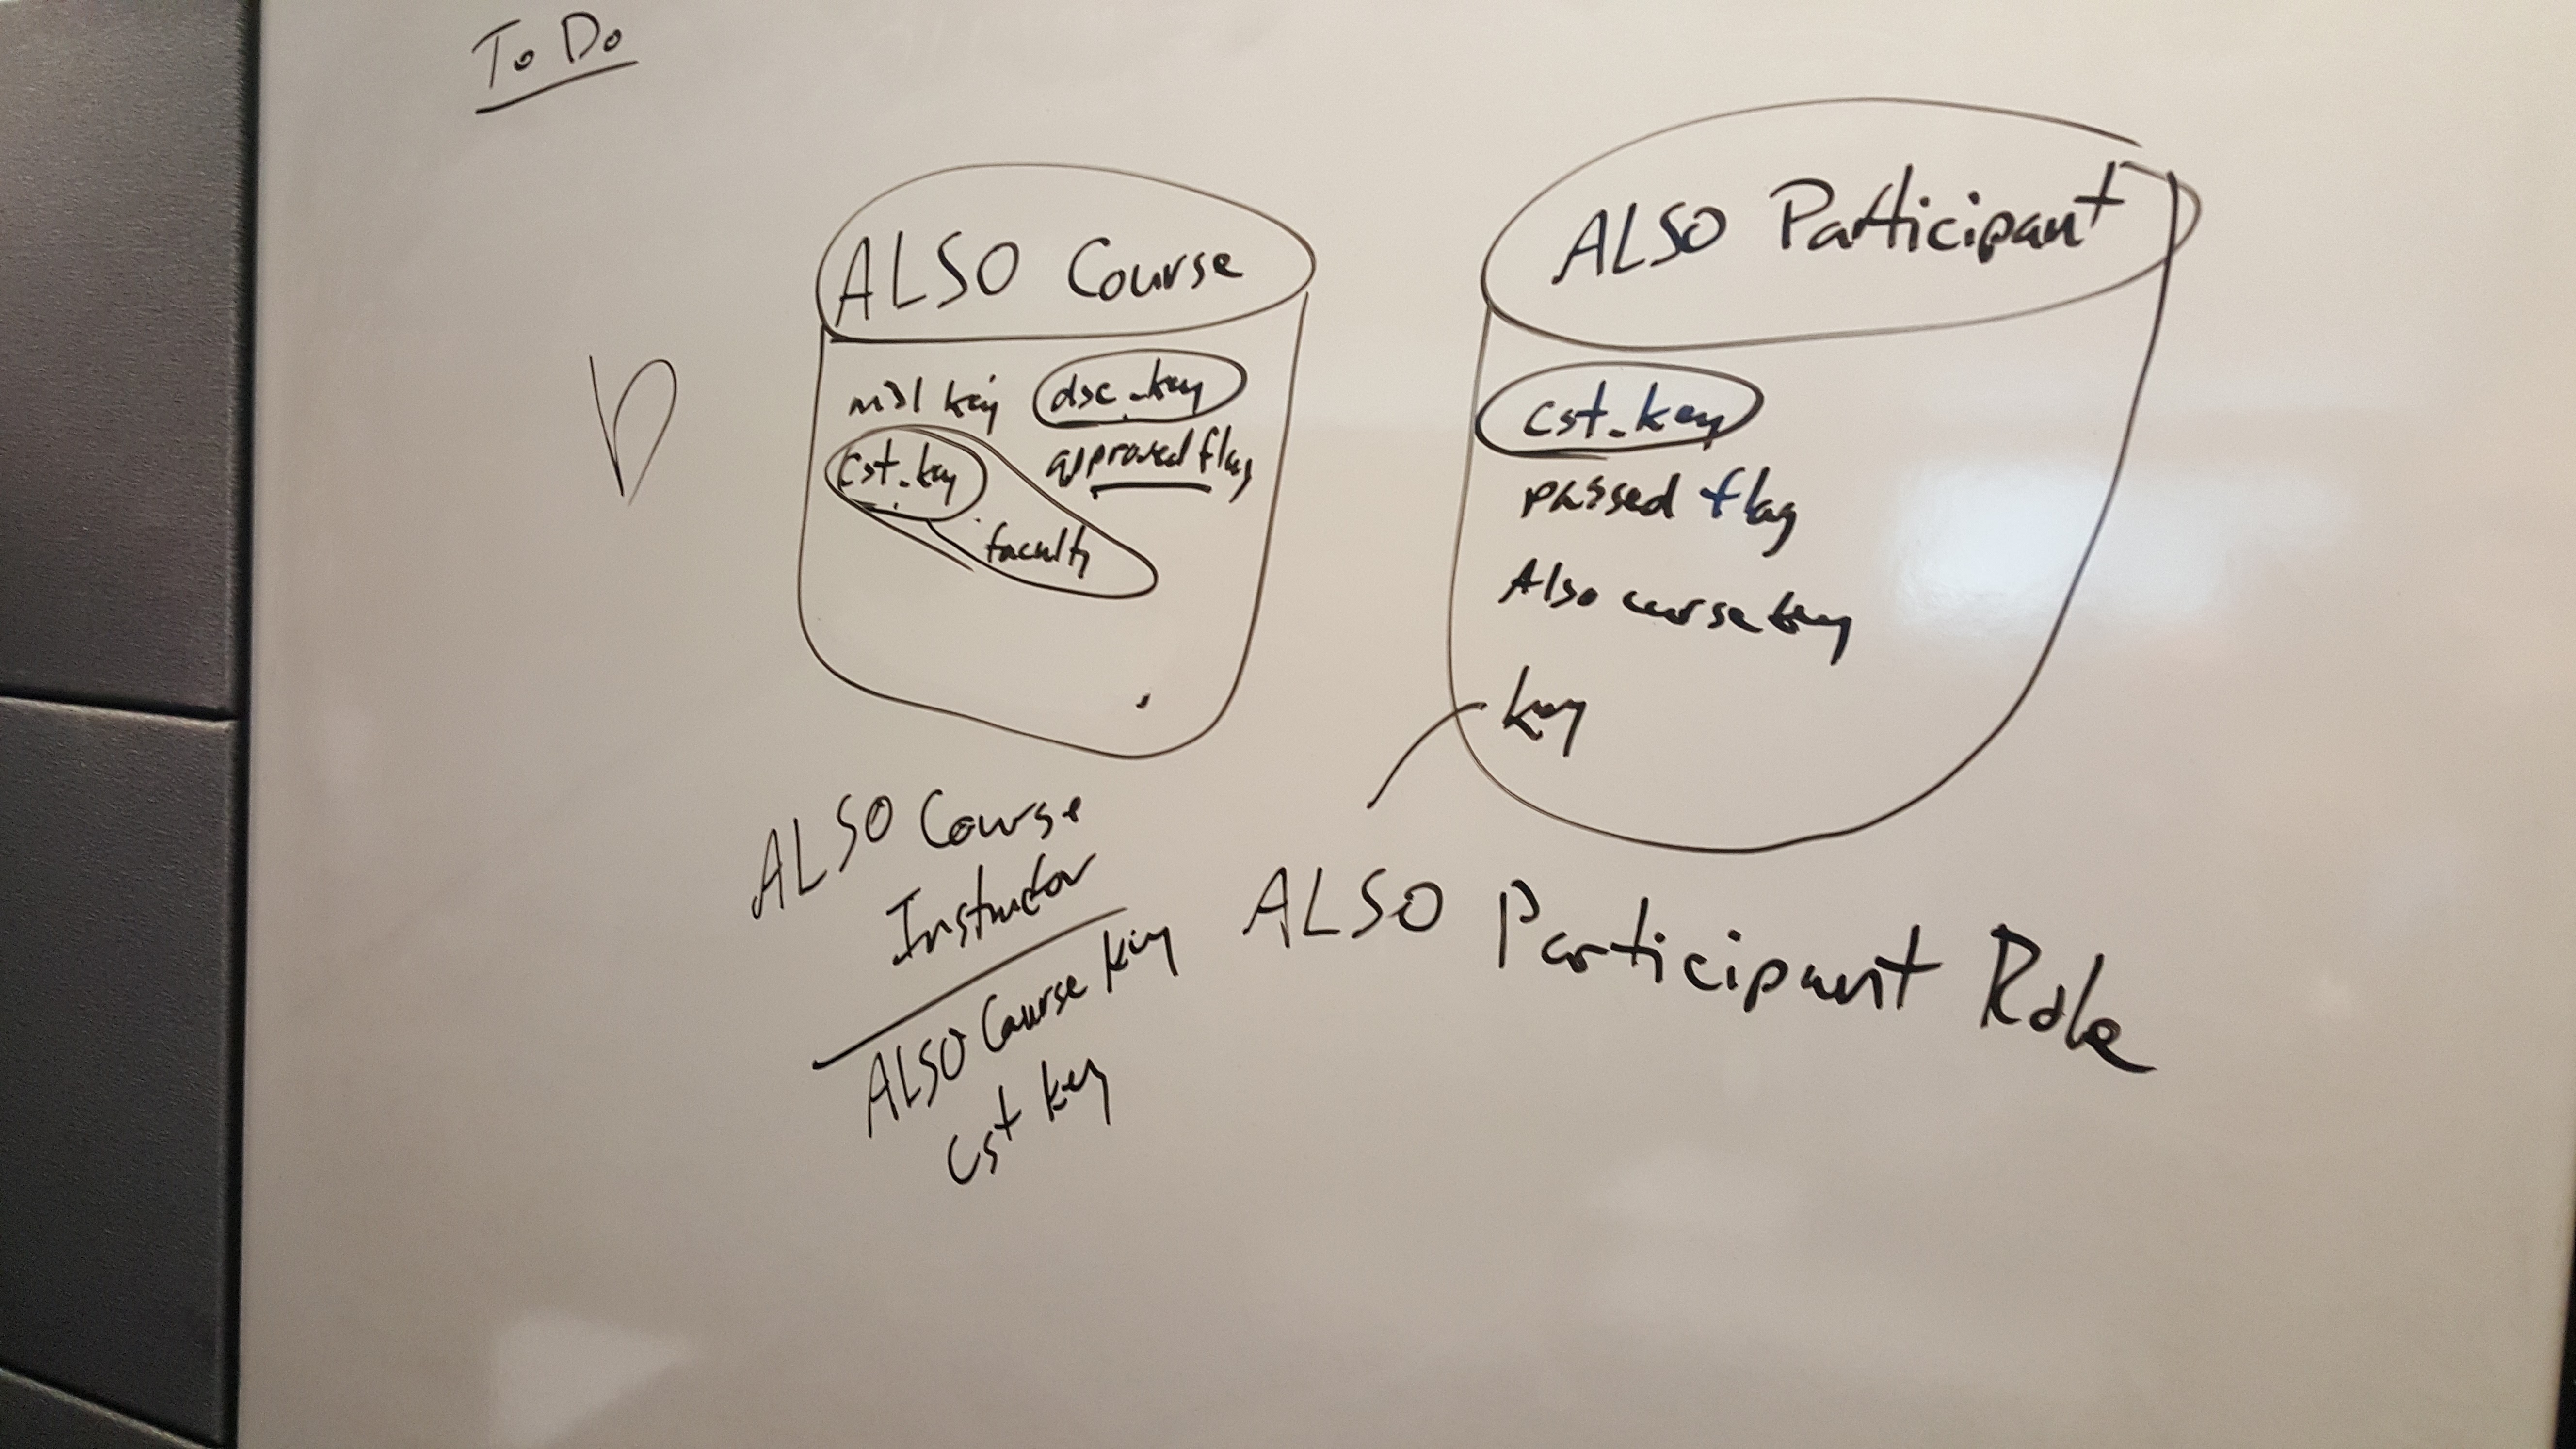 To Do
ALSO Course
mdl key dsc_key
cst_key approved flag
faculty
ALSO Participant
cst_key
passed flag
Also course key
key
ALSO Course
Instructor
ALSO Course key
cst key
ALSO Participant Role